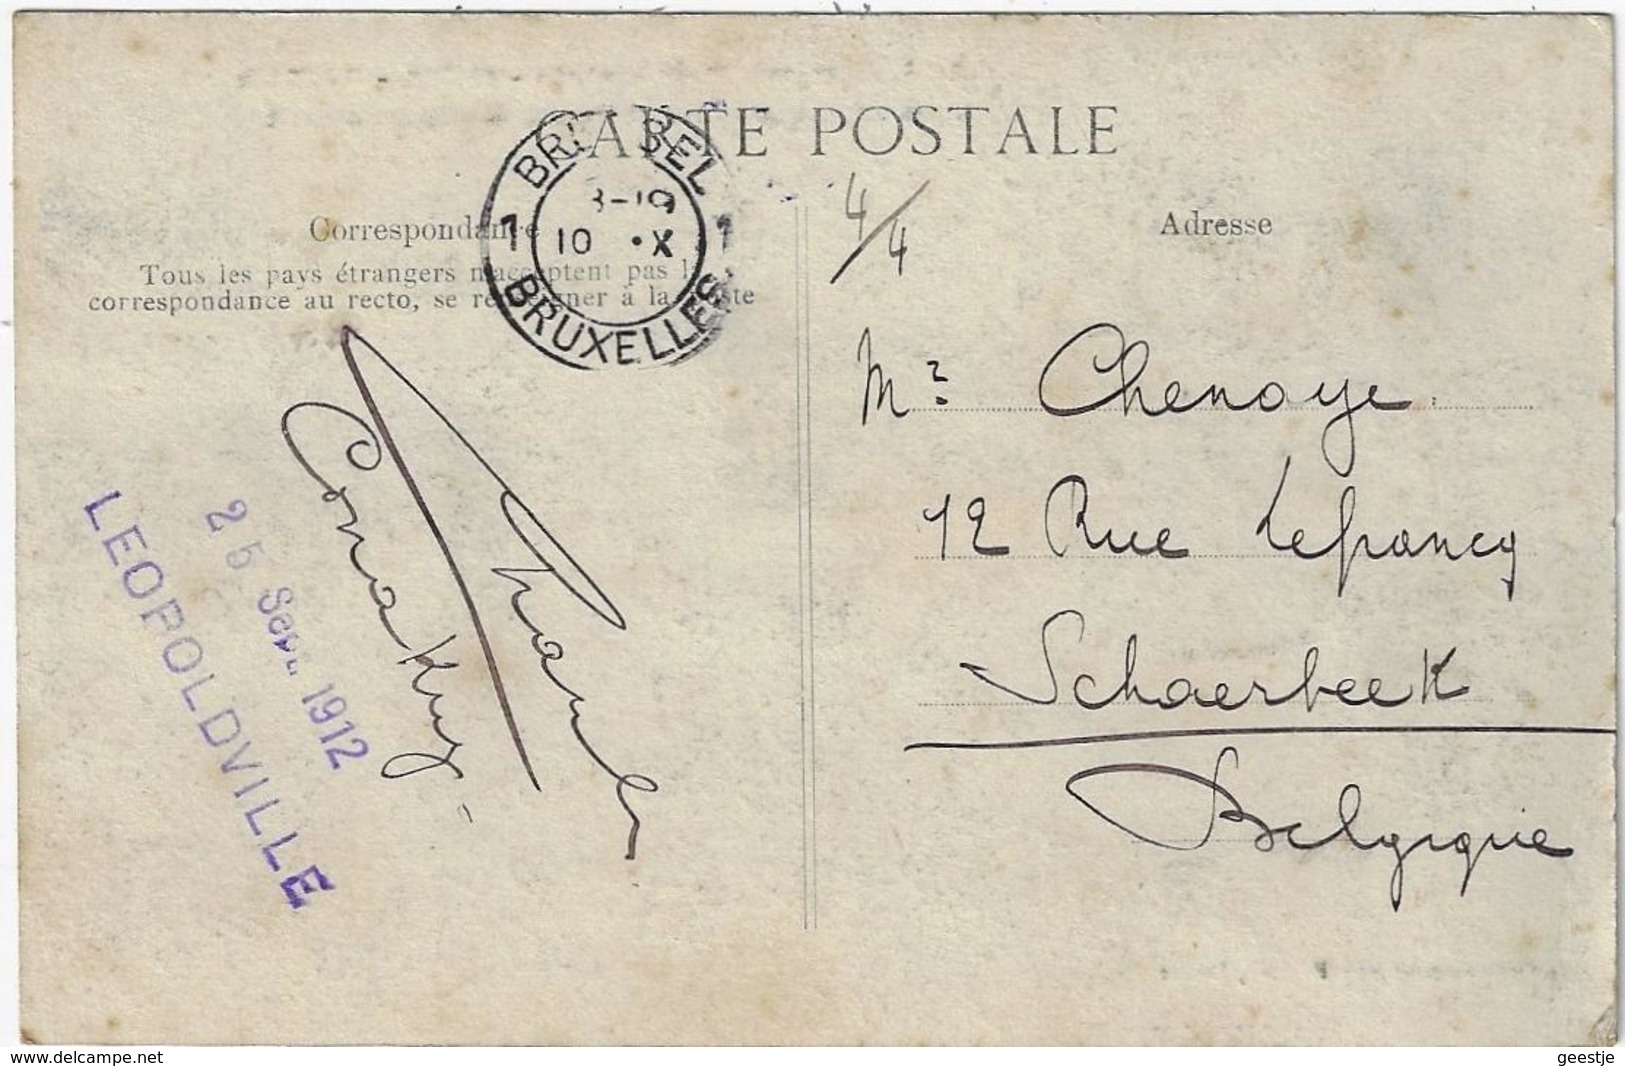 CARTE POSTALE
BRUSSEL
8-19
1 10 • X 1
BRUXELLES
Correspondance
Tous les pays étrangers n'acceptent pas la
correspondance au recto, se renseigner à la Poste
Conakry
2 5 Sept. 1912
LEOPOLDVILLE
4/4
Adresse
Mr Chenoye
12 Rue Lefrancq
Schaerbeek
Belgique
www.delcampe.net
geestje